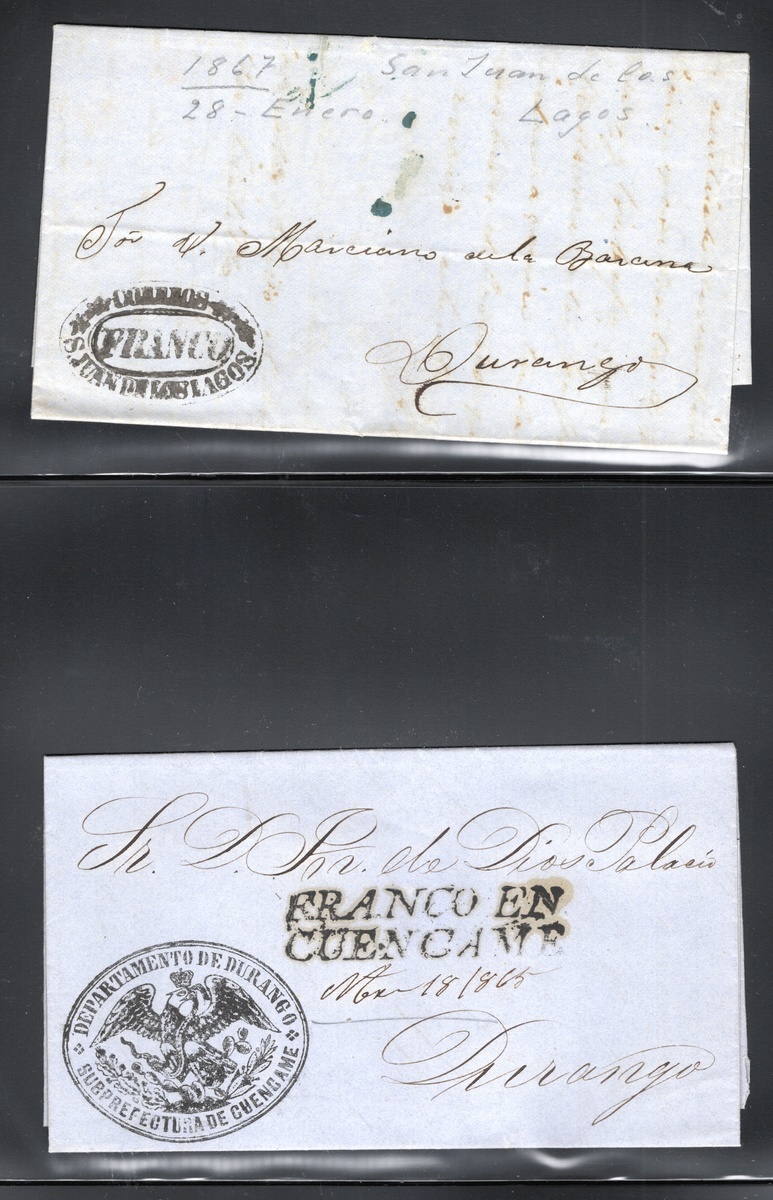 1867 San Juan de los
28 - Enero. Lagos.
Sõr D. Marciano de la Barcena
Durango
CORREOS
FRANCO
S. JUAN DE LOS LAGOS.
Sr. D. Jn. de Dios Palacio
FRANCO EN
CUENCAME
18/865
Durango
DEPARTAMENTO DE DURANGO
SUBPREFECTURA DE CUENCAME